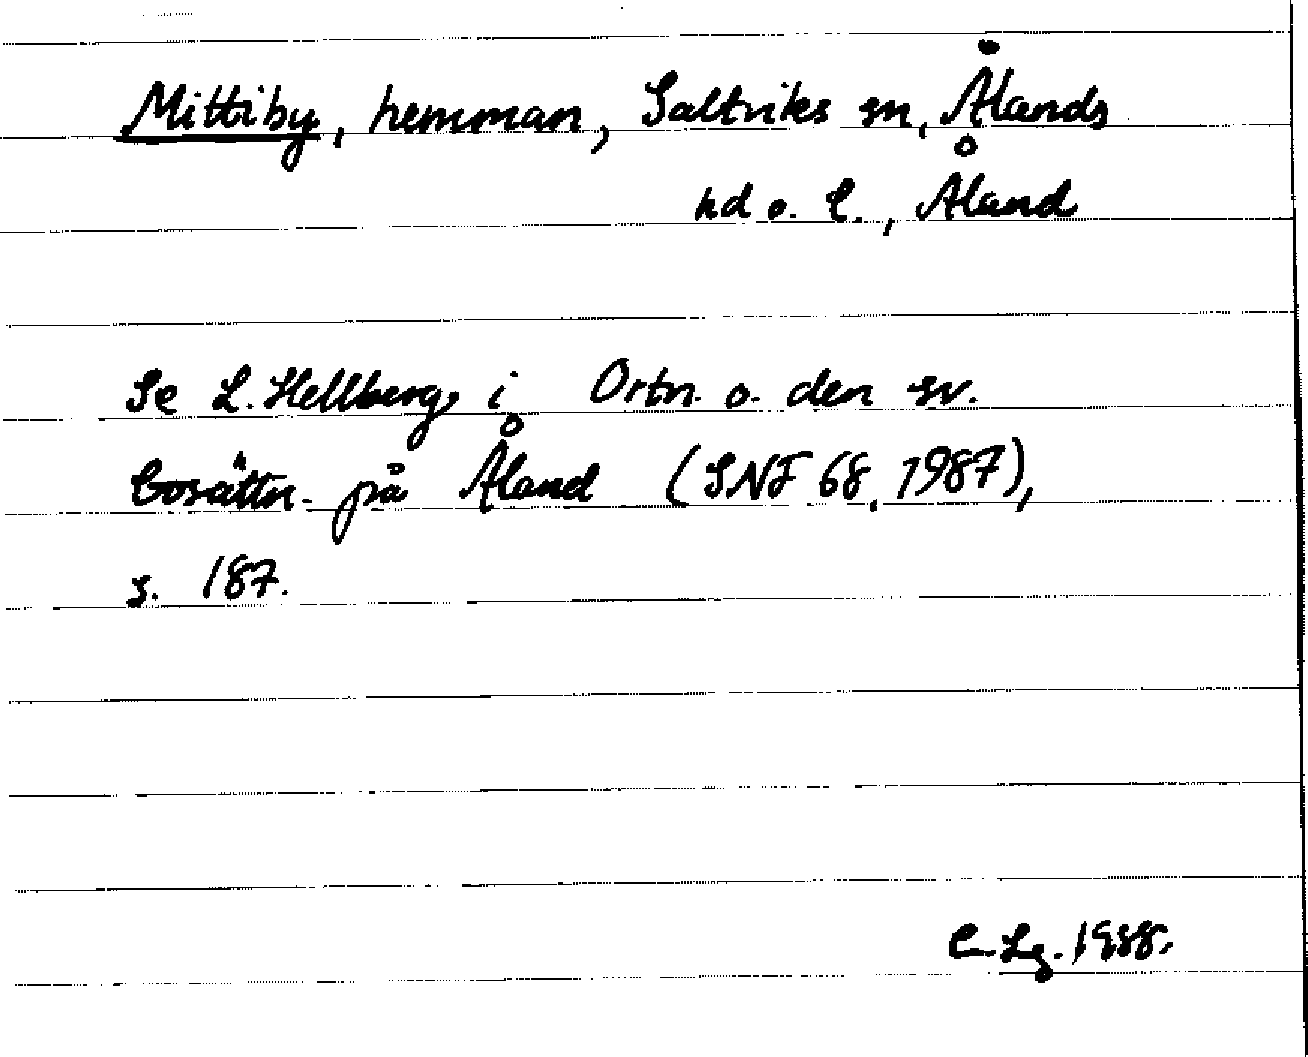 Mittiby, hemman, Saltviks sn, Ålands
hd o. l., Åland
Se L. Hellberg i Ortn. o. den sv.
bosättn. på Åland (SNF 68, 1987),
s. 187.
C. Lg. 1988.